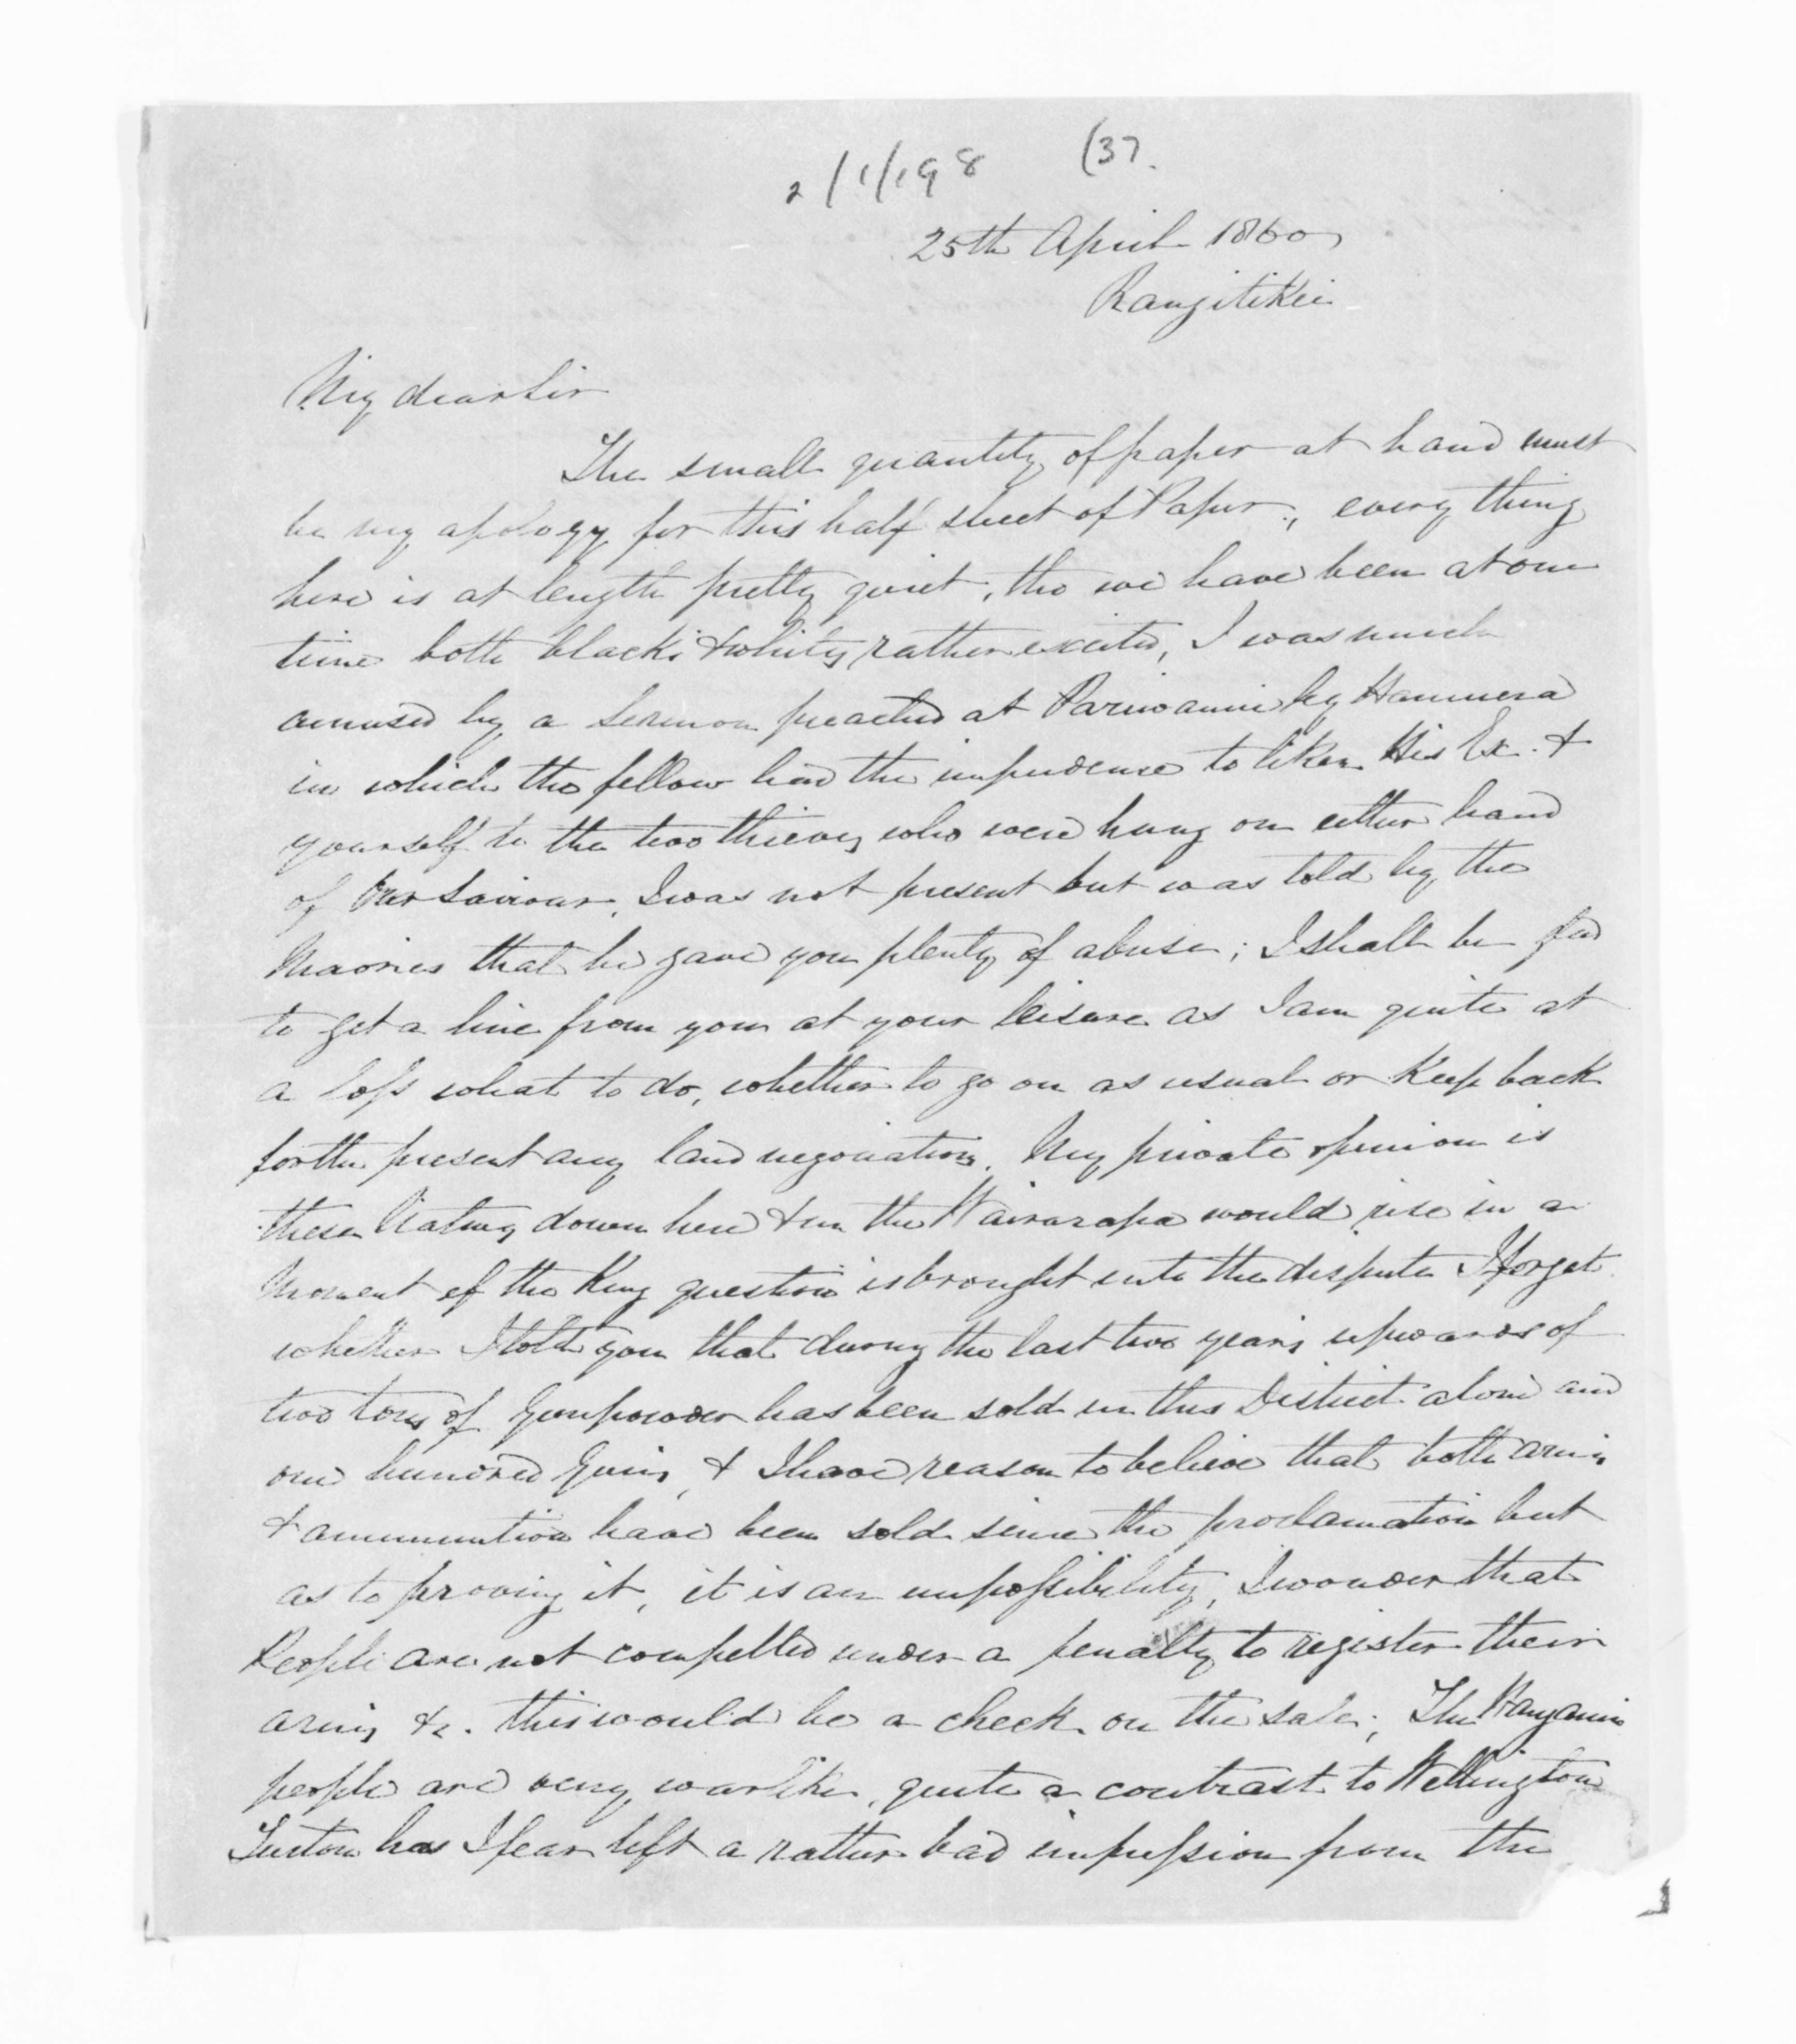 2/1/198 (37.
25th April 1860
Rangitikei
My dear Sir
The small quantity of paper at hand must
be my apology for this half sheet of Paper, every thing
here is at length pretty quiet, tho we have been at one
time both blacks & whites rather excited, I was much
amused by a sermon preached at Parewanui by
in which the fellow had the impudence to liken His Ex. &
yourself to the two thieves who were hung on either hand
of Our Saviour, I was not present but was told by the
Maories that he gave you plenty of abuse; I shall be glad
to get a line from you at your leisure as I am quite at
a loss what to do, whether to go on as usual or keep back
for the present any land negociations. My private opinion is
these Natives down here & in the Wairarapa would rise in a
moment if the King question is brought into the dispute I forget
whether I told you that during the last two years upwards of
two tons of Gunpowder has been sold in this District alone and
one hundred Guns, & I have reason to believe that both arms
& ammunition have been sold since the proclamation but
as to proving it, it is an impossibility, I wonder that
People are not compelled under a penalty to register their
arms &c. this would be a check on the sale; The Wanganui
people are very warlike, quite a contrast to Wellington
has I fear left a rather bad impression from the